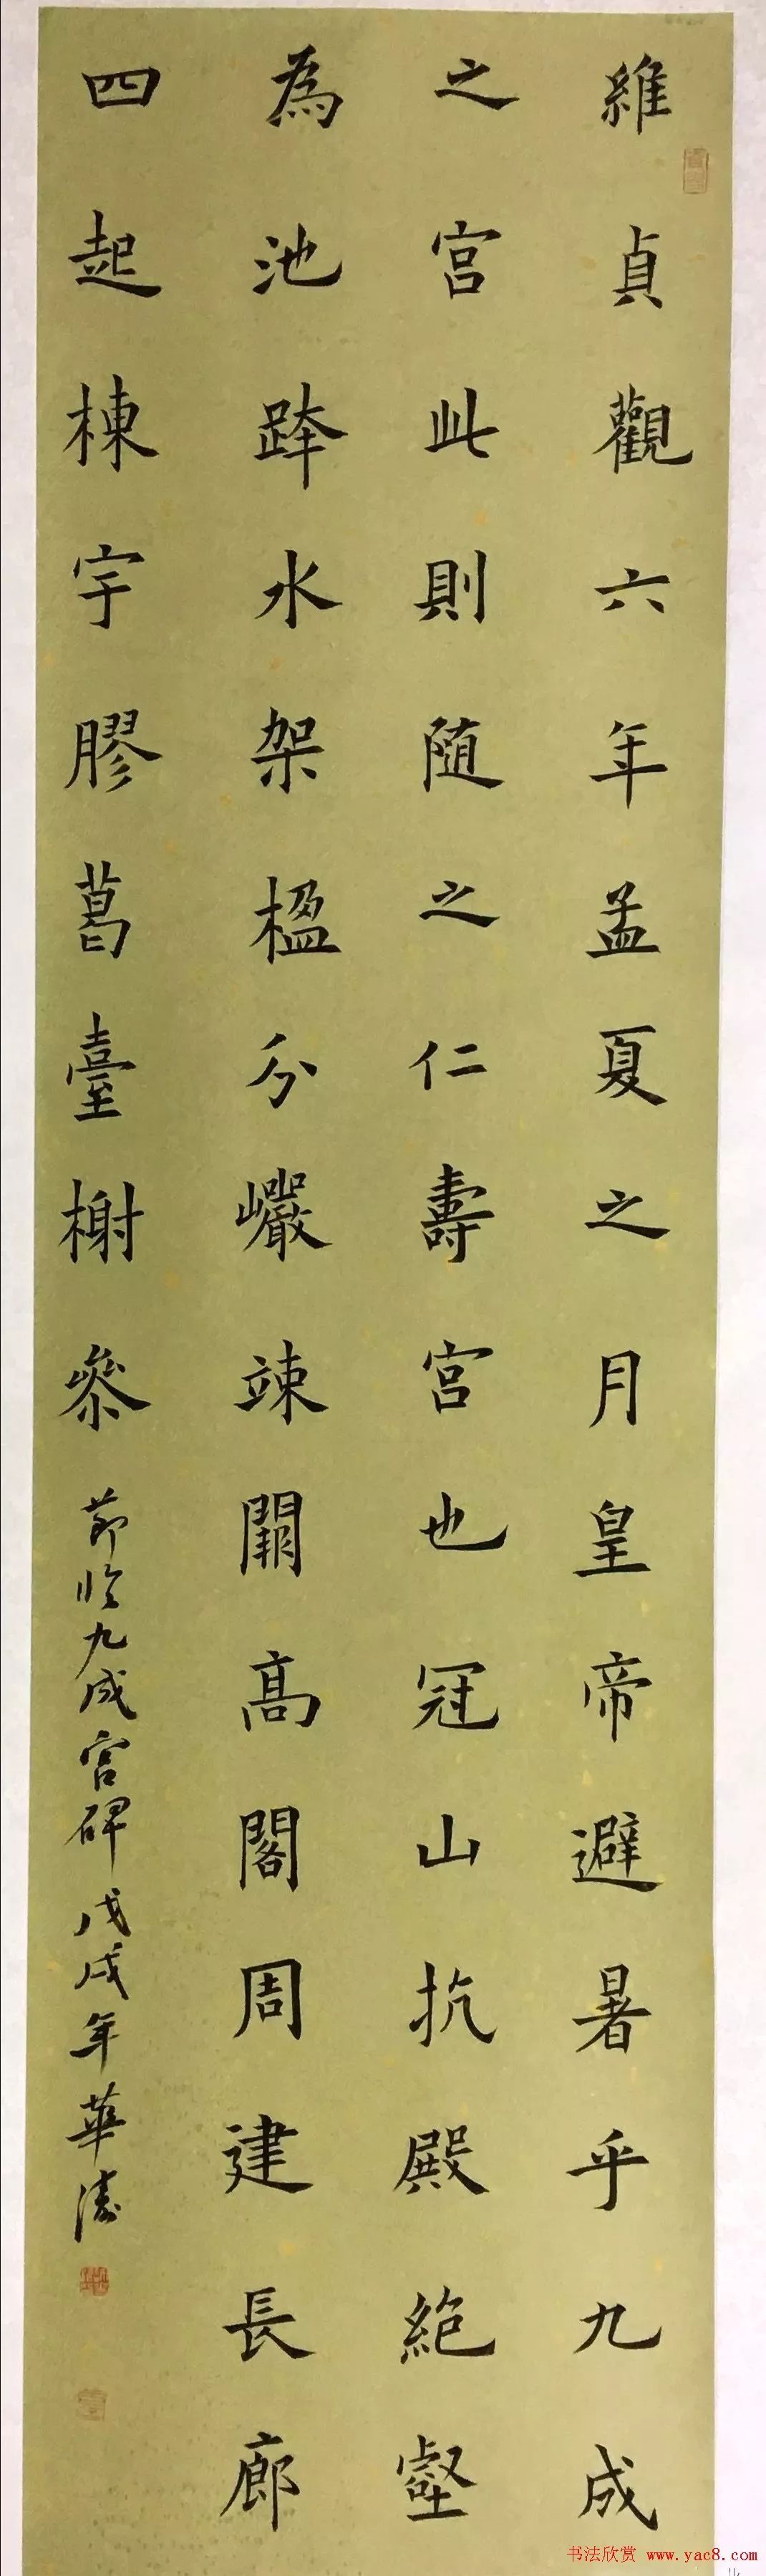 維貞觀六年孟夏之月皇帝避暑乎九成
之宮此則随之仁壽宮也冠山抗殿絶壑
為池跨水架楹分巖竦闕高閣周建長廊
四起棟宇膠葛臺榭叅
節临九成宮碑戊戌年華濤
书法欣赏 www.yac8.com